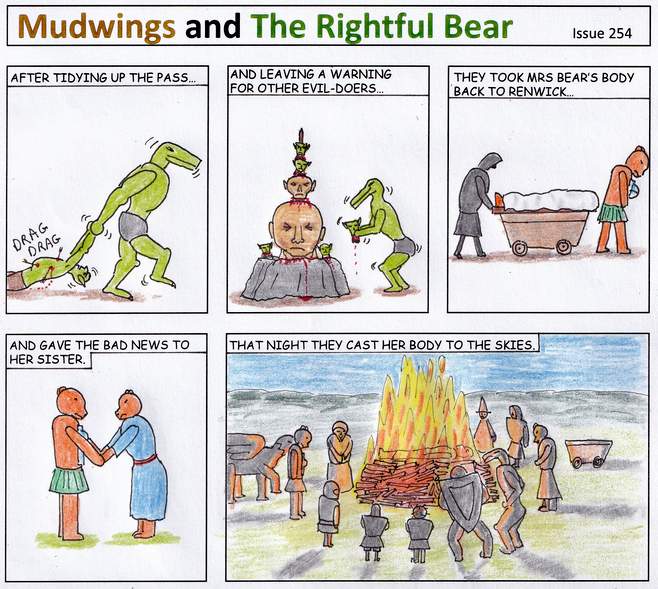 Mudwings and The Rightful Bear
Issue 254
AFTER TIDYING UP THE PASS...
DRAG
DRAG
AND LEAVING A WARNING
FOR OTHER EVIL-DOERS...
THEY TOOK MRS BEAR'S BODY
BACK TO RENWICK...
AND GAVE THE BAD NEWS TO
HER SISTER.
THAT NIGHT THEY CAST HER BODY TO THE SKIES.